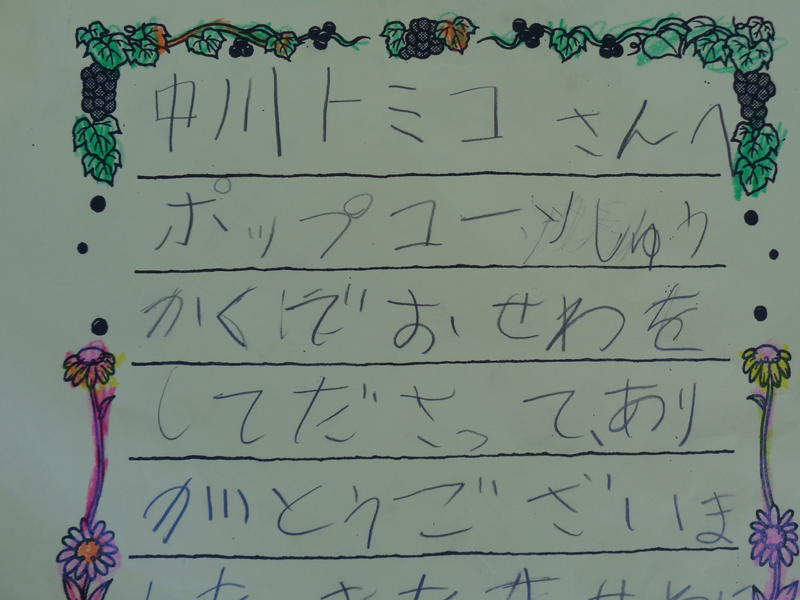 中川トミコ さんへ
ポップコーンしゅう
かくでおせわを
してださって、あり
がとうございま